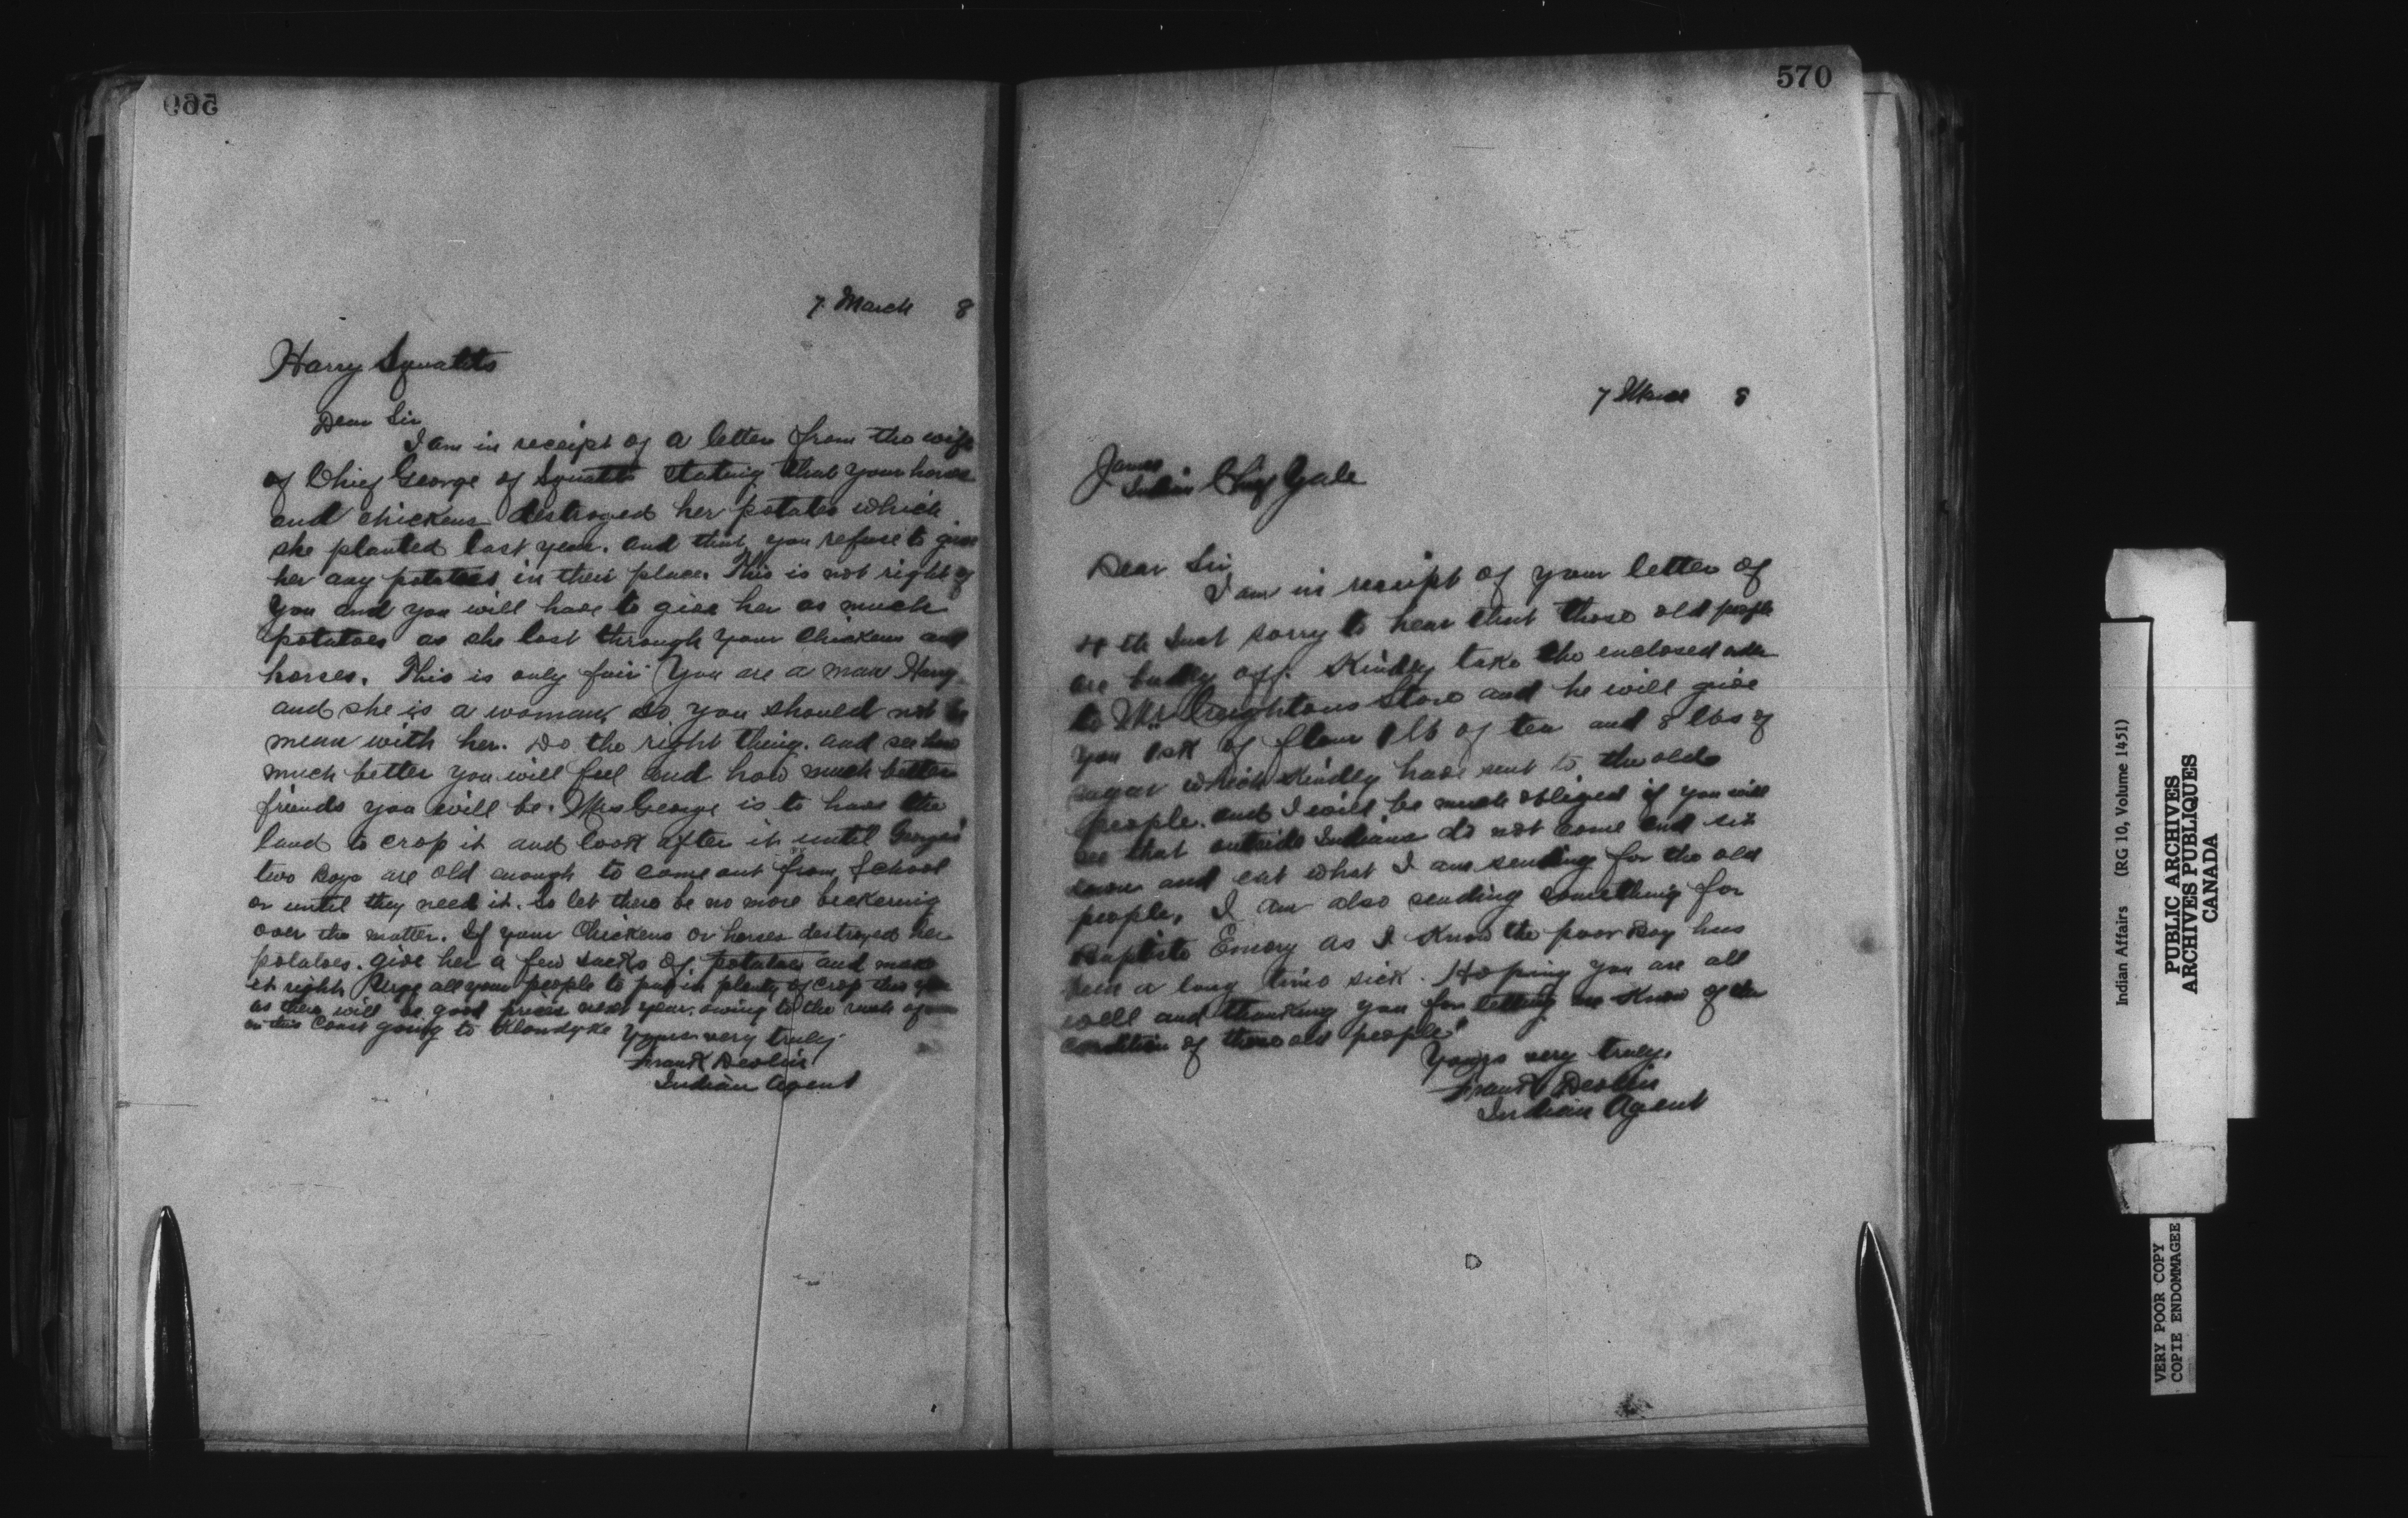 569
7 March 8
Harry Squatits
Dear Sir
I am in receipt of a letter from the wife
of Chief George of Squatits stating that your horses
and chickens destroyed her potatoes which
she planted last year. and that you refuse to give
her any potatoes in their place. This is not right of
you and you will have to give her as much
potatoes as she lost through your chickens and
horses. This is only fair You are a man Harry
and she is a woman, so you should not be
mean with her. Do the right thing. and see how
much better you will feel and how much better
friends you will be. Mrs George is to have the
land to crop it and look after it until Georges
two Boys are old enough to come out from School
or until they need it. So let there be no more bickering
over the matter. If your Chickens or horses destroyed her
potatoes. give her a few sacks of potatoes and make
it right. Urge all your people to put in plenty of crop this year
as there will be good prices next year. owing to the rush of
on this Coast going to Klondyke Yours very truly
Frank Devlin
Indian Agent
570
7 March 8
James
Indian Chief Yale
Dear Sir
I am in receipt of your letter of
4th Inst sorry to hear that those old people
are badly off. Kindly take the enclosed order
to Mr Creightons Store and he will give
you 1 sk of flour 1 lb of tea and 8 lbs of
sugar which kindly have sent to the old
people. and I will be much obliged if you will
see that outside Indians do not come and sit
down and eat what I am sending for the old
people. I am also sending something for
Baptiste Emory as I know the poor Boy has
been a long time sick. Hoping you are all
well and thanking you for letting me know of the
condition of those old people
Yours very truly,
Frank Devlin
Indian Agent
Indian Affairs (RG 10, Volume 1451)
PUBLIC ARCHIVES
ARCHIVES PUBLIQUES
CANADA
VERY POOR COPY
COPIE ENDOMMAGEE